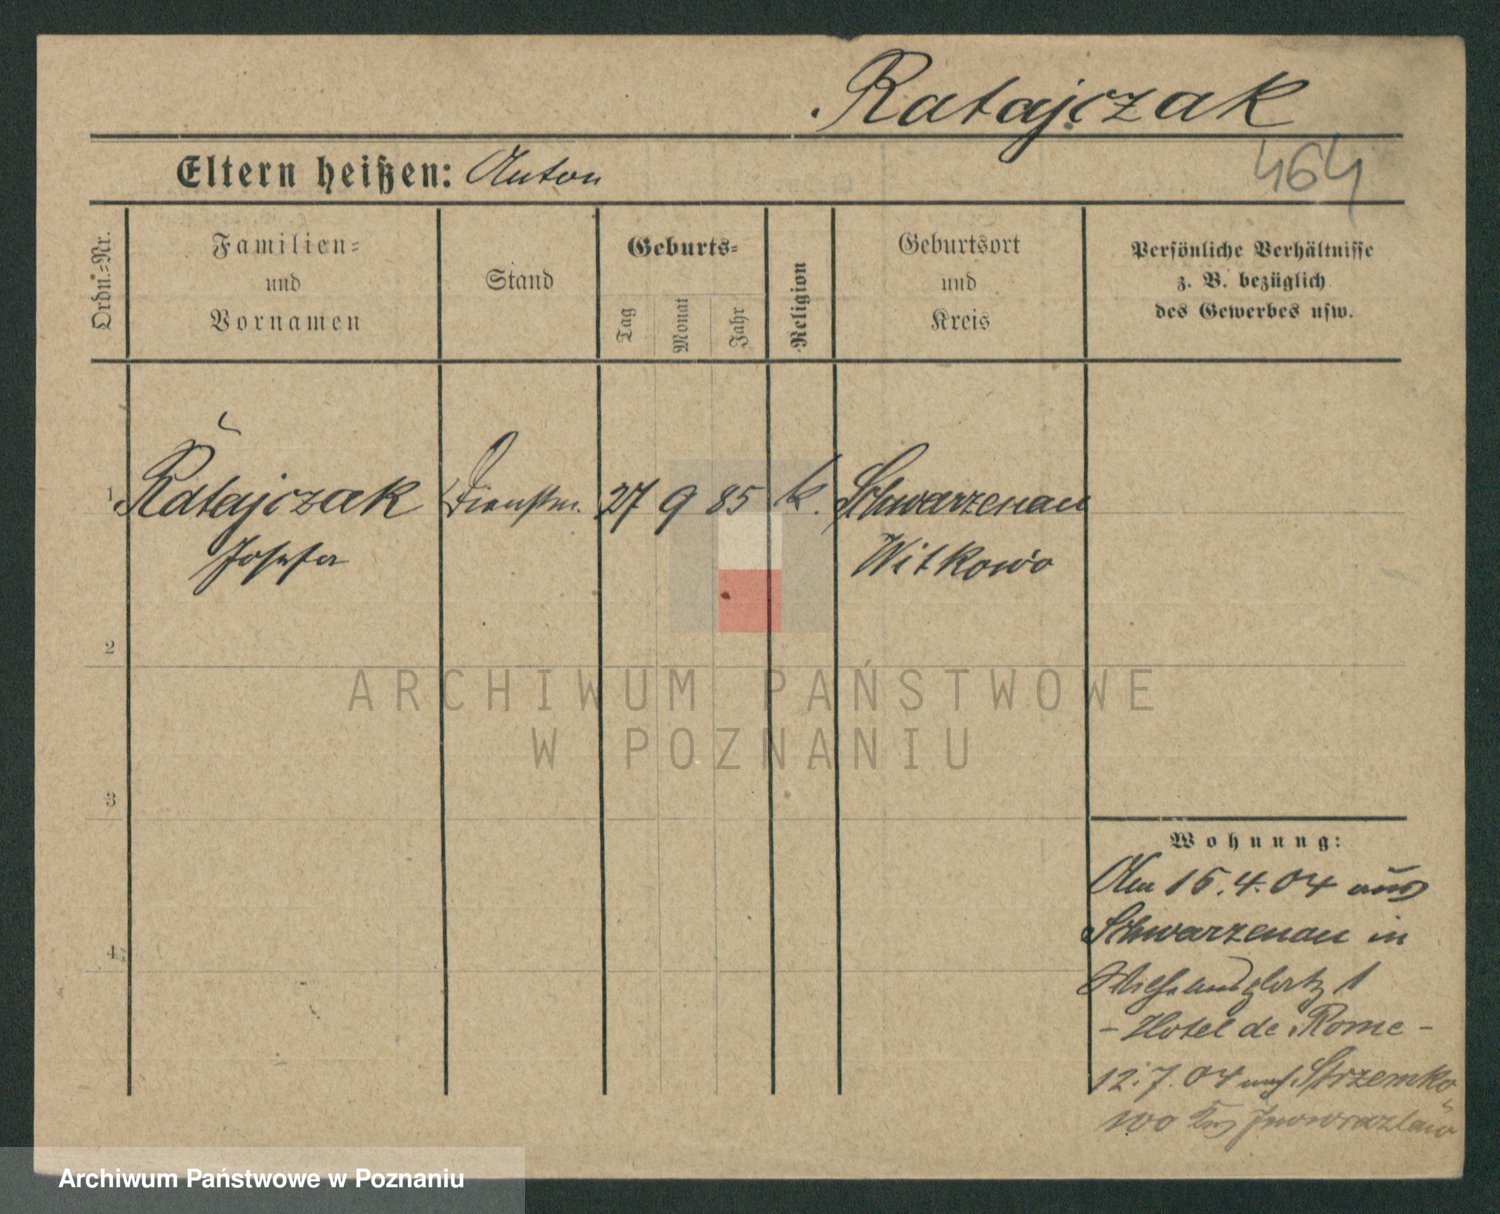 Ratajczak
464
Eltern heißen: Anton
Ordn.-Nr.
Familien-
und
Vornamen
Stand
Geburts-
Tag
Monat
Jahr
Religion
Geburtsort
und
Kreis
Persönliche Verhältnisse
z. B. bezüglich
des Gewerbes usw.
1 Ratajczak Dienstm. 27 9 85 k. Schwarzenau
Josefa Witkowo
2
ARCHIWUM PAŃSTWOWE
W POZNANIU
3
Wohnung:
Am 15.4.04 aus
Schwarzenau in
4
Wilhelmsplatz 1
- Hotel de Rome -
12.7.04 nach Strzemko
wo Krs Inowrazlaw
Archiwum Państwowe w Poznaniu